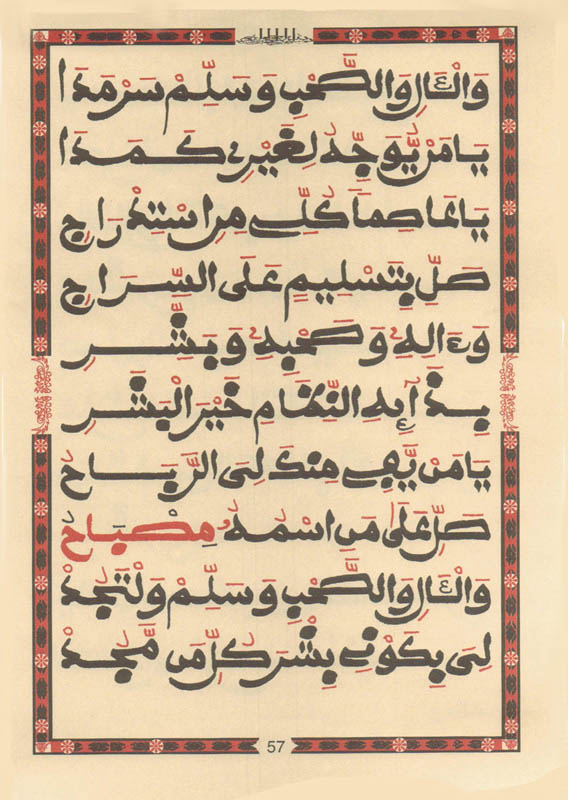 وَالْءَالِ وَالصَّحْبِ وَسَلِّمْ سَرْمَدَا
يَا مَنْ يُّوَجِّهُ لِغَيْرِے كَمَدَا
يَا عَاصِماً كُلِّے مِنِ اسْتِدْرَاجِ
صَلِّ بِتَسْلِيمٍ عَلَى السِّرَاجِ
وَءَالِهِ وَصَحْبِهِ وَبَشِّرِ
النِّظَامِ خَيْرَ الْبَشَرِ
يَا مَنْ يَّفِے مِنْكَ لِىَ الرَّبَاحُ
صَلِّ عَلَى مَنِ اسْمُهُ مِصْبَاحُ
وَالْءَالِ وَالصَّحْبِ وَسَلِّمْ وَلْتَجُدْ
لِى بِكَوْنِے بِشْرَ كُلِّ مَن مَّجُدْ
57